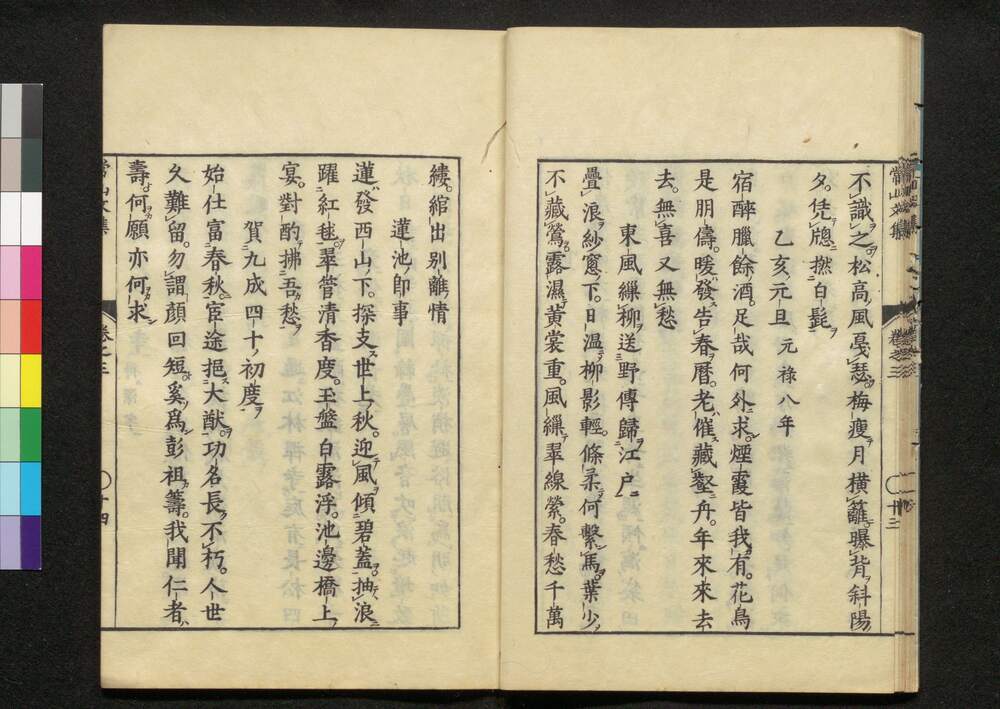 不識之松高風戛瑟梅瘦月橫籬曝背斜陽
夕凭牕撚白髭
乙亥元旦 元禄八年
宿醉臘餘酒足哉何外求煙霞皆我有花鳥
是朋儔暖發告春曆老催藏壑舟年來來去
去無喜又無愁
東風繰柳送野傳歸江戸
疊浪紗窓下日溫柳影輕條柔何繫馬葉少
不藏鶯露濕黃裳重風繰翠線縈春愁千萬
常山文集 卷之三 十三
縷綰出別離情
蓮池即事
蓮發西山下探支世上秋迎風傾碧蓋抽浪
躍紅毬翠管清香度玉盤白露浮池邊橋上
宴對酌拂吾愁
賀九成四十初度
始仕富春秋宦途挹大猷功名長不朽人世
久難留勿謂顏回短奚爲彭祖籌我聞仁者
壽何願亦何求
常山文集 卷之三 十四